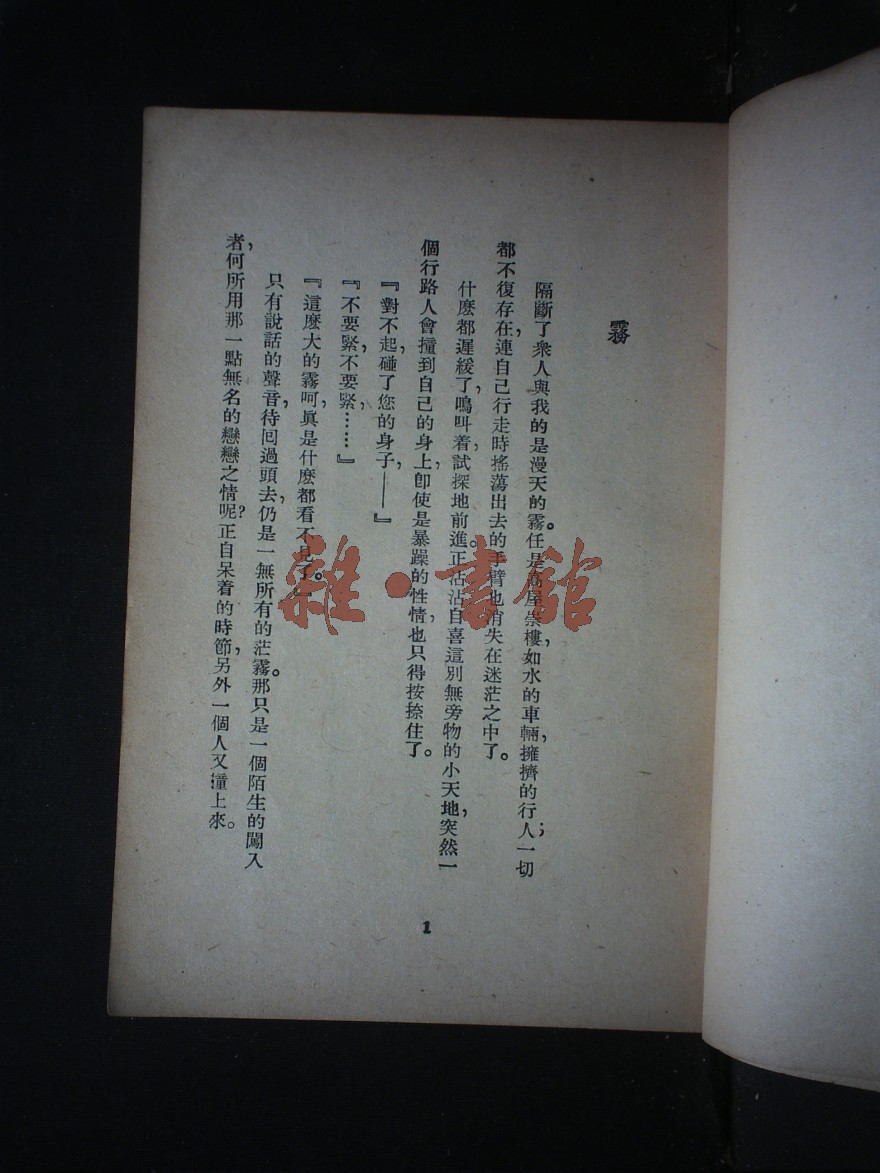 霧
隔斷了衆人與我的是漫天的霧。任是高屋崇樓如水的車輛，擁擠的行人一切
都不復存在，連自己行走時搖蕩出去的手臂也消失在迷茫之中了。
什麽都遲緩了，鳴叫着，試探地前進。正沾沾自喜這別無旁物的小天地，突然一
個行路人會撞到自己的身上，卽使是暴躁的性情，也只得按捺住了。
『對不起，碰了您的身子，——』
『不要緊，不要緊，……』
『這麽大的霧呵，眞是什麽都看不見了。』
只有說話的聲音，待囘過頭去，仍是一無所有的茫霧。那只是一個陌生的闖入
者，何所用那一點無名的戀戀之情呢？正自呆着的時節，另外一個人又撞上來。
1
雜·書館